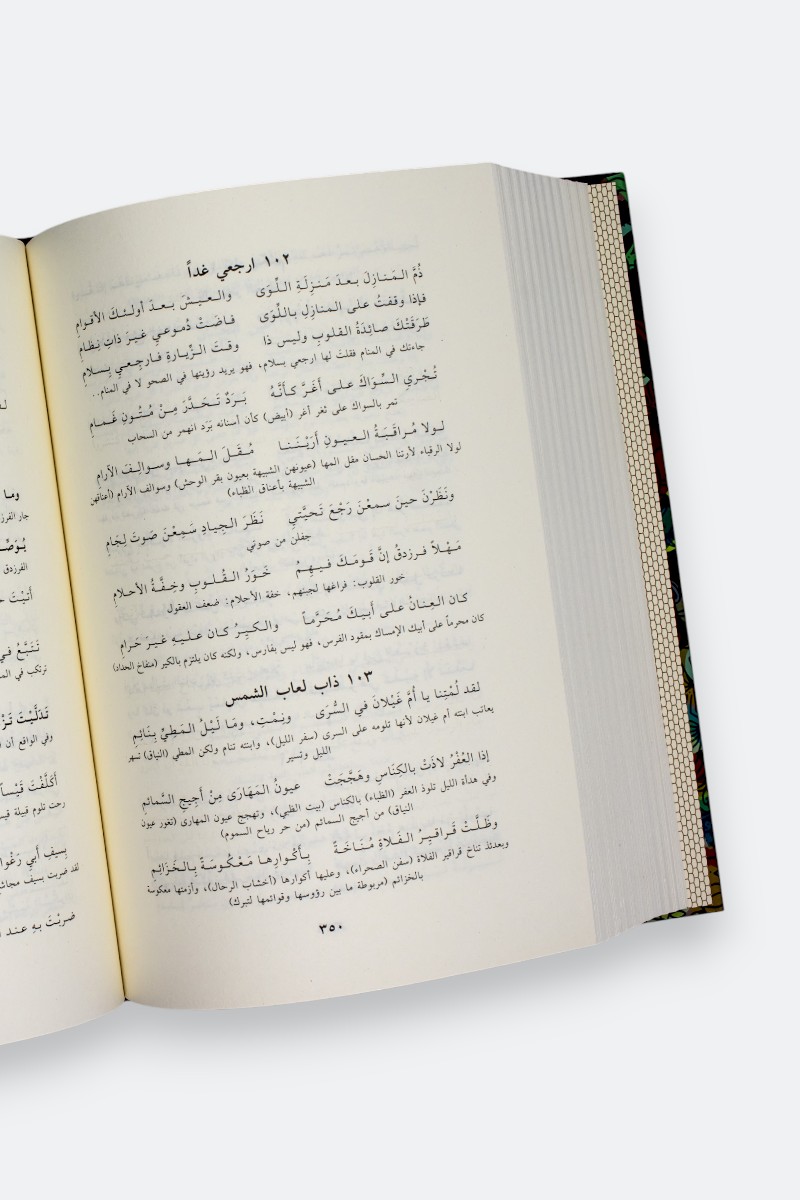 ١٠٢ ارجعي غداً
ذُمَّ المَنازِلَ بعدَ مَنزِلَةِ اللَّوَى والعيشَ بعدَ أولئكَ الأقوامِ
فإذا وقفتُ على المنازلِ باللَّوَى فاضَتْ دُموعي غيرَ ذاتِ نِظامِ
طَرَقَتْكَ صائِدَةُ القلوبِ وليس ذا وقتَ الزِّيارةِ فارجِعي بِسلامِ
جاءتك في المنام فقلتَ لها ارجعي بسلام، فهو يريد رؤيتها في الصحو لا في المنام..
تُجْرِي السِّوَاكَ على أغَرَّ كأنَّهُ بَرَدٌ تَحَدَّرَ مِنْ مُتُونِ غَمامِ
تمر بالسواك على ثغر أغر (أبيض) كأن أسنانه بَرَد انهمر من السحاب
لولا مُراقَبَةُ العيونِ أرَيْنَنا مُقَلَ المَها وسوالِفَ الآرامِ
لولا الرقباء لأرتنا الحسان مقل المها (عيونهن الشبيهة بعيون بقر الوحش) وسوالف الآرام (أعناقهن
الشبيهة بأعناق الظباء)
ونَظَرْنَ حينَ سمعْنَ رَجْعَ تَحيَّتي نَظَرَ الجِيادِ سَمِعْنَ صَوتَ لِجَامِ
جفلن من صوتي
مَهْلاً فرزدقُ إنَّ قَومَكَ فيهِمُ خَوَرُ القُلوبِ وخِفَّةُ الأحلامِ
خور القلوب: فراغها لجبنهم، خفة الأحلام: ضعف العقول
كان العِنانُ على أبيكَ مُحَرَّماً والكيرُ كان عليهِ غيرَ حَرامِ
كان محرماً على أبيك الإمساك بمقود الفرس، فهو ليس بفارس، ولكنه كان يلتزم بالكير (منفاخ الحداد)
١٠٣ ذاب لعاب الشمس
لقد لُمْتِنا يا أُمَّ غَيْلانَ في السُّرَى ونِمْتِ، ومَا لَيْلُ المَطِيِّ بِنَائِمِ
يعاتب ابنته أم غيلان لأنها تلومه على السرى (سفر الليل)، وابنته تنام ولكن المطي (النياق) تسهر
الليل وتسير
إذا العُفْرُ لاذَتْ بالكِنَاسِ وهَجَّجَتْ عيونُ المَهارَى مِنْ أجيجِ السَّمائمِ
وفي هدأة الليل تلوذ العفر (الظباء) بالكناس (بيت الظبي)، وتهجج عيون المهارى (تغور عيون
النياق) من أجيج السمائم (من حر رياح السموم)
وظَلَّتْ قَراقيرُ الفَلاةِ مُناخَةً بِأكْوارِها مَعْكُوسَةً بِالخَزائِمِ
وبعدئذ تناخ قراقير الفلاة (سفن الصحراء)، وعليها أكوارها (أخشاب الرحال)، وأزمتها معكوسة
بالخزائم (مربوطة ما بين رؤوسها وقوائمها لتبرك)
٣٥٠